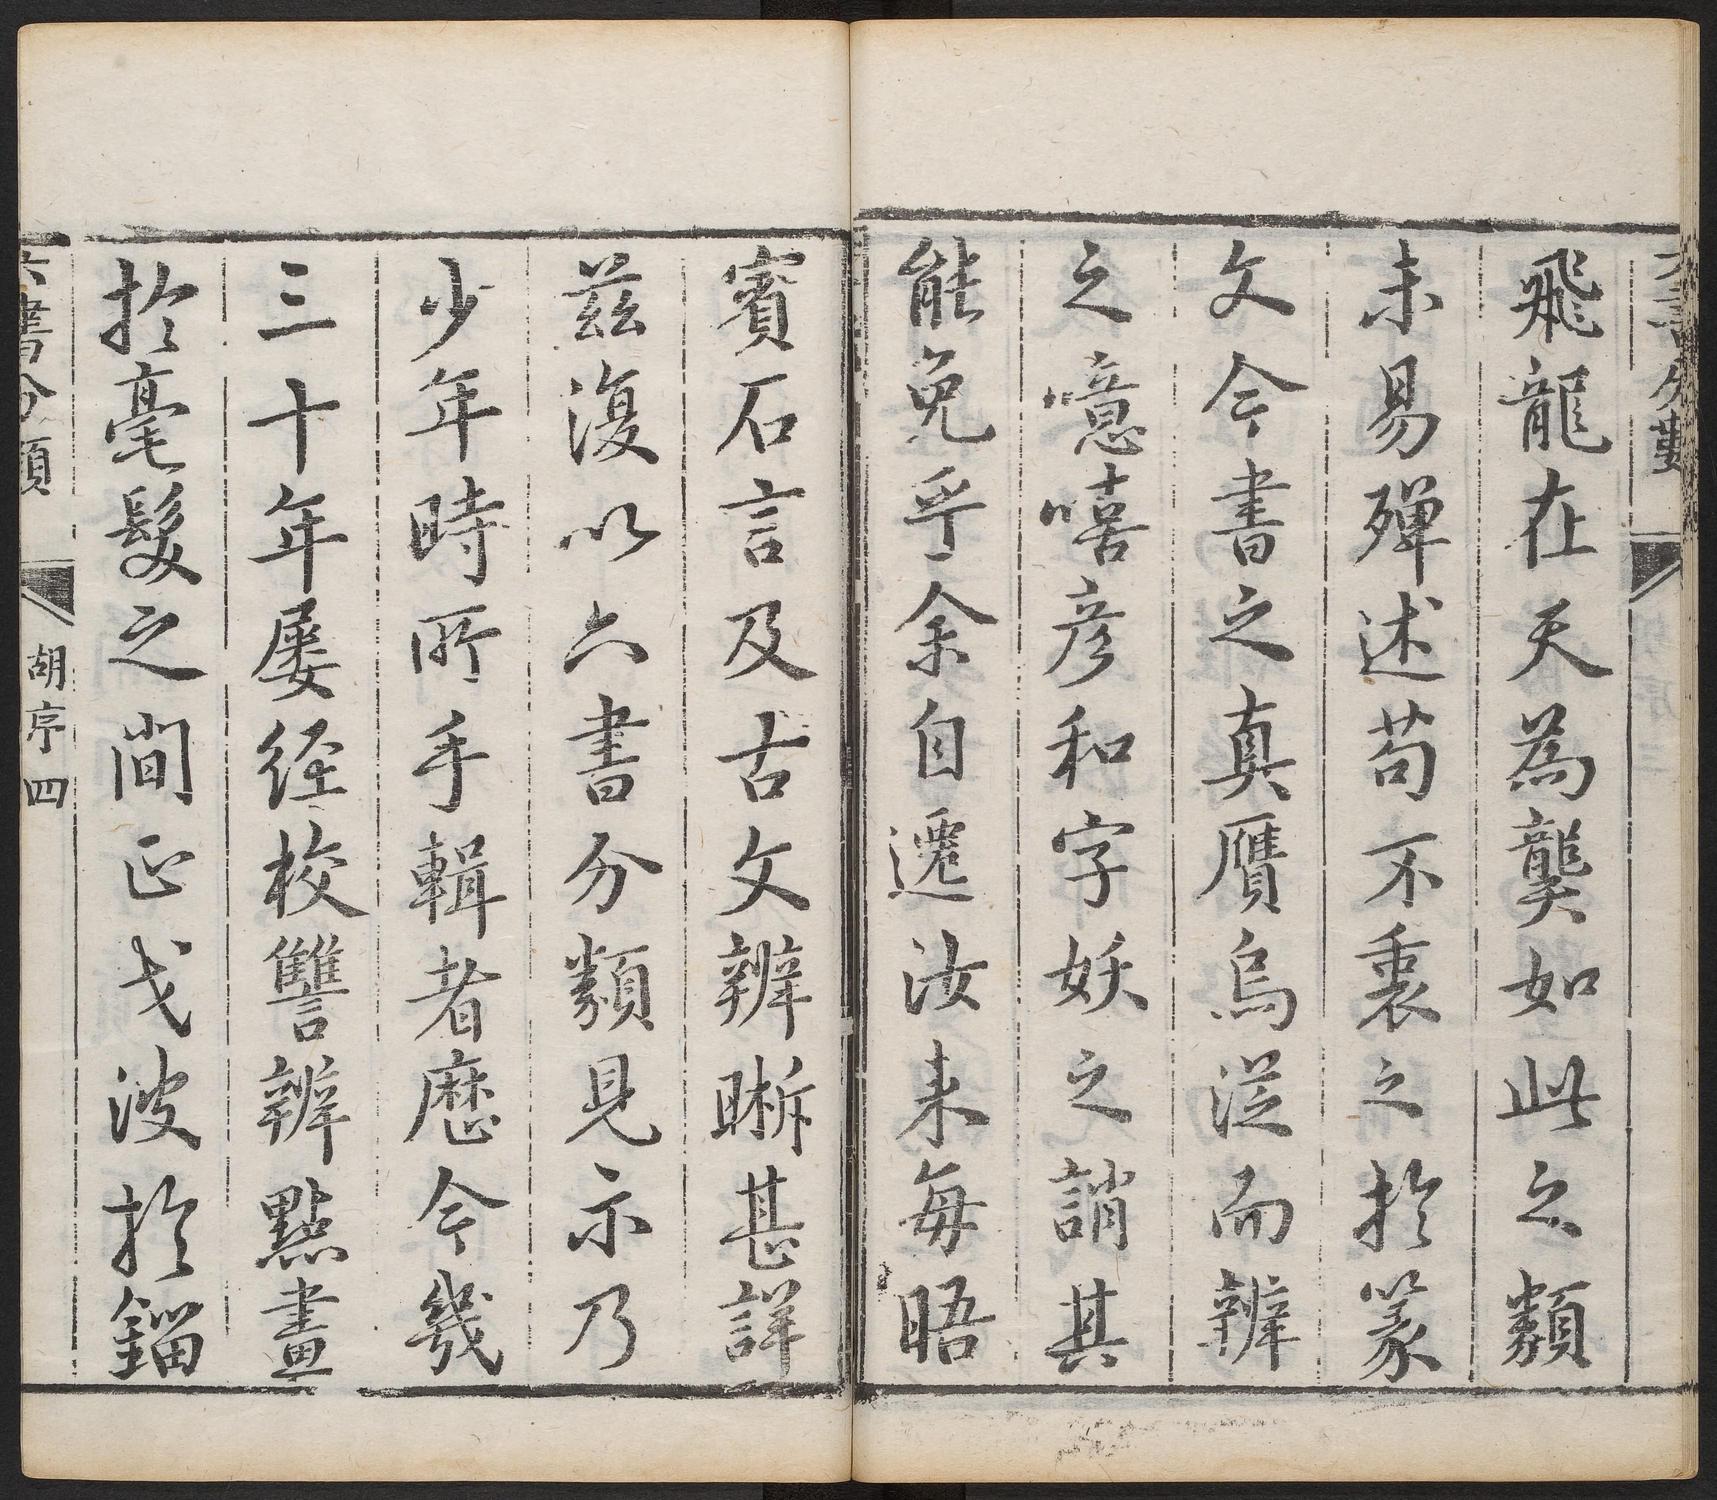 飛龍在天為龑如此之類
未易殫述苟不衷之於篆
文今書之真贋烏從而辨
之噫嘻彦和字妖之誚其
能免乎余自遷汝来每晤
賓石言及古文辨晰甚詳
茲復以六書分類見示乃
少年時所手輯者歷今幾
三十年屡经校讐辨點畫
於毫髮之間正戈波於錙
六書分類 胡序四